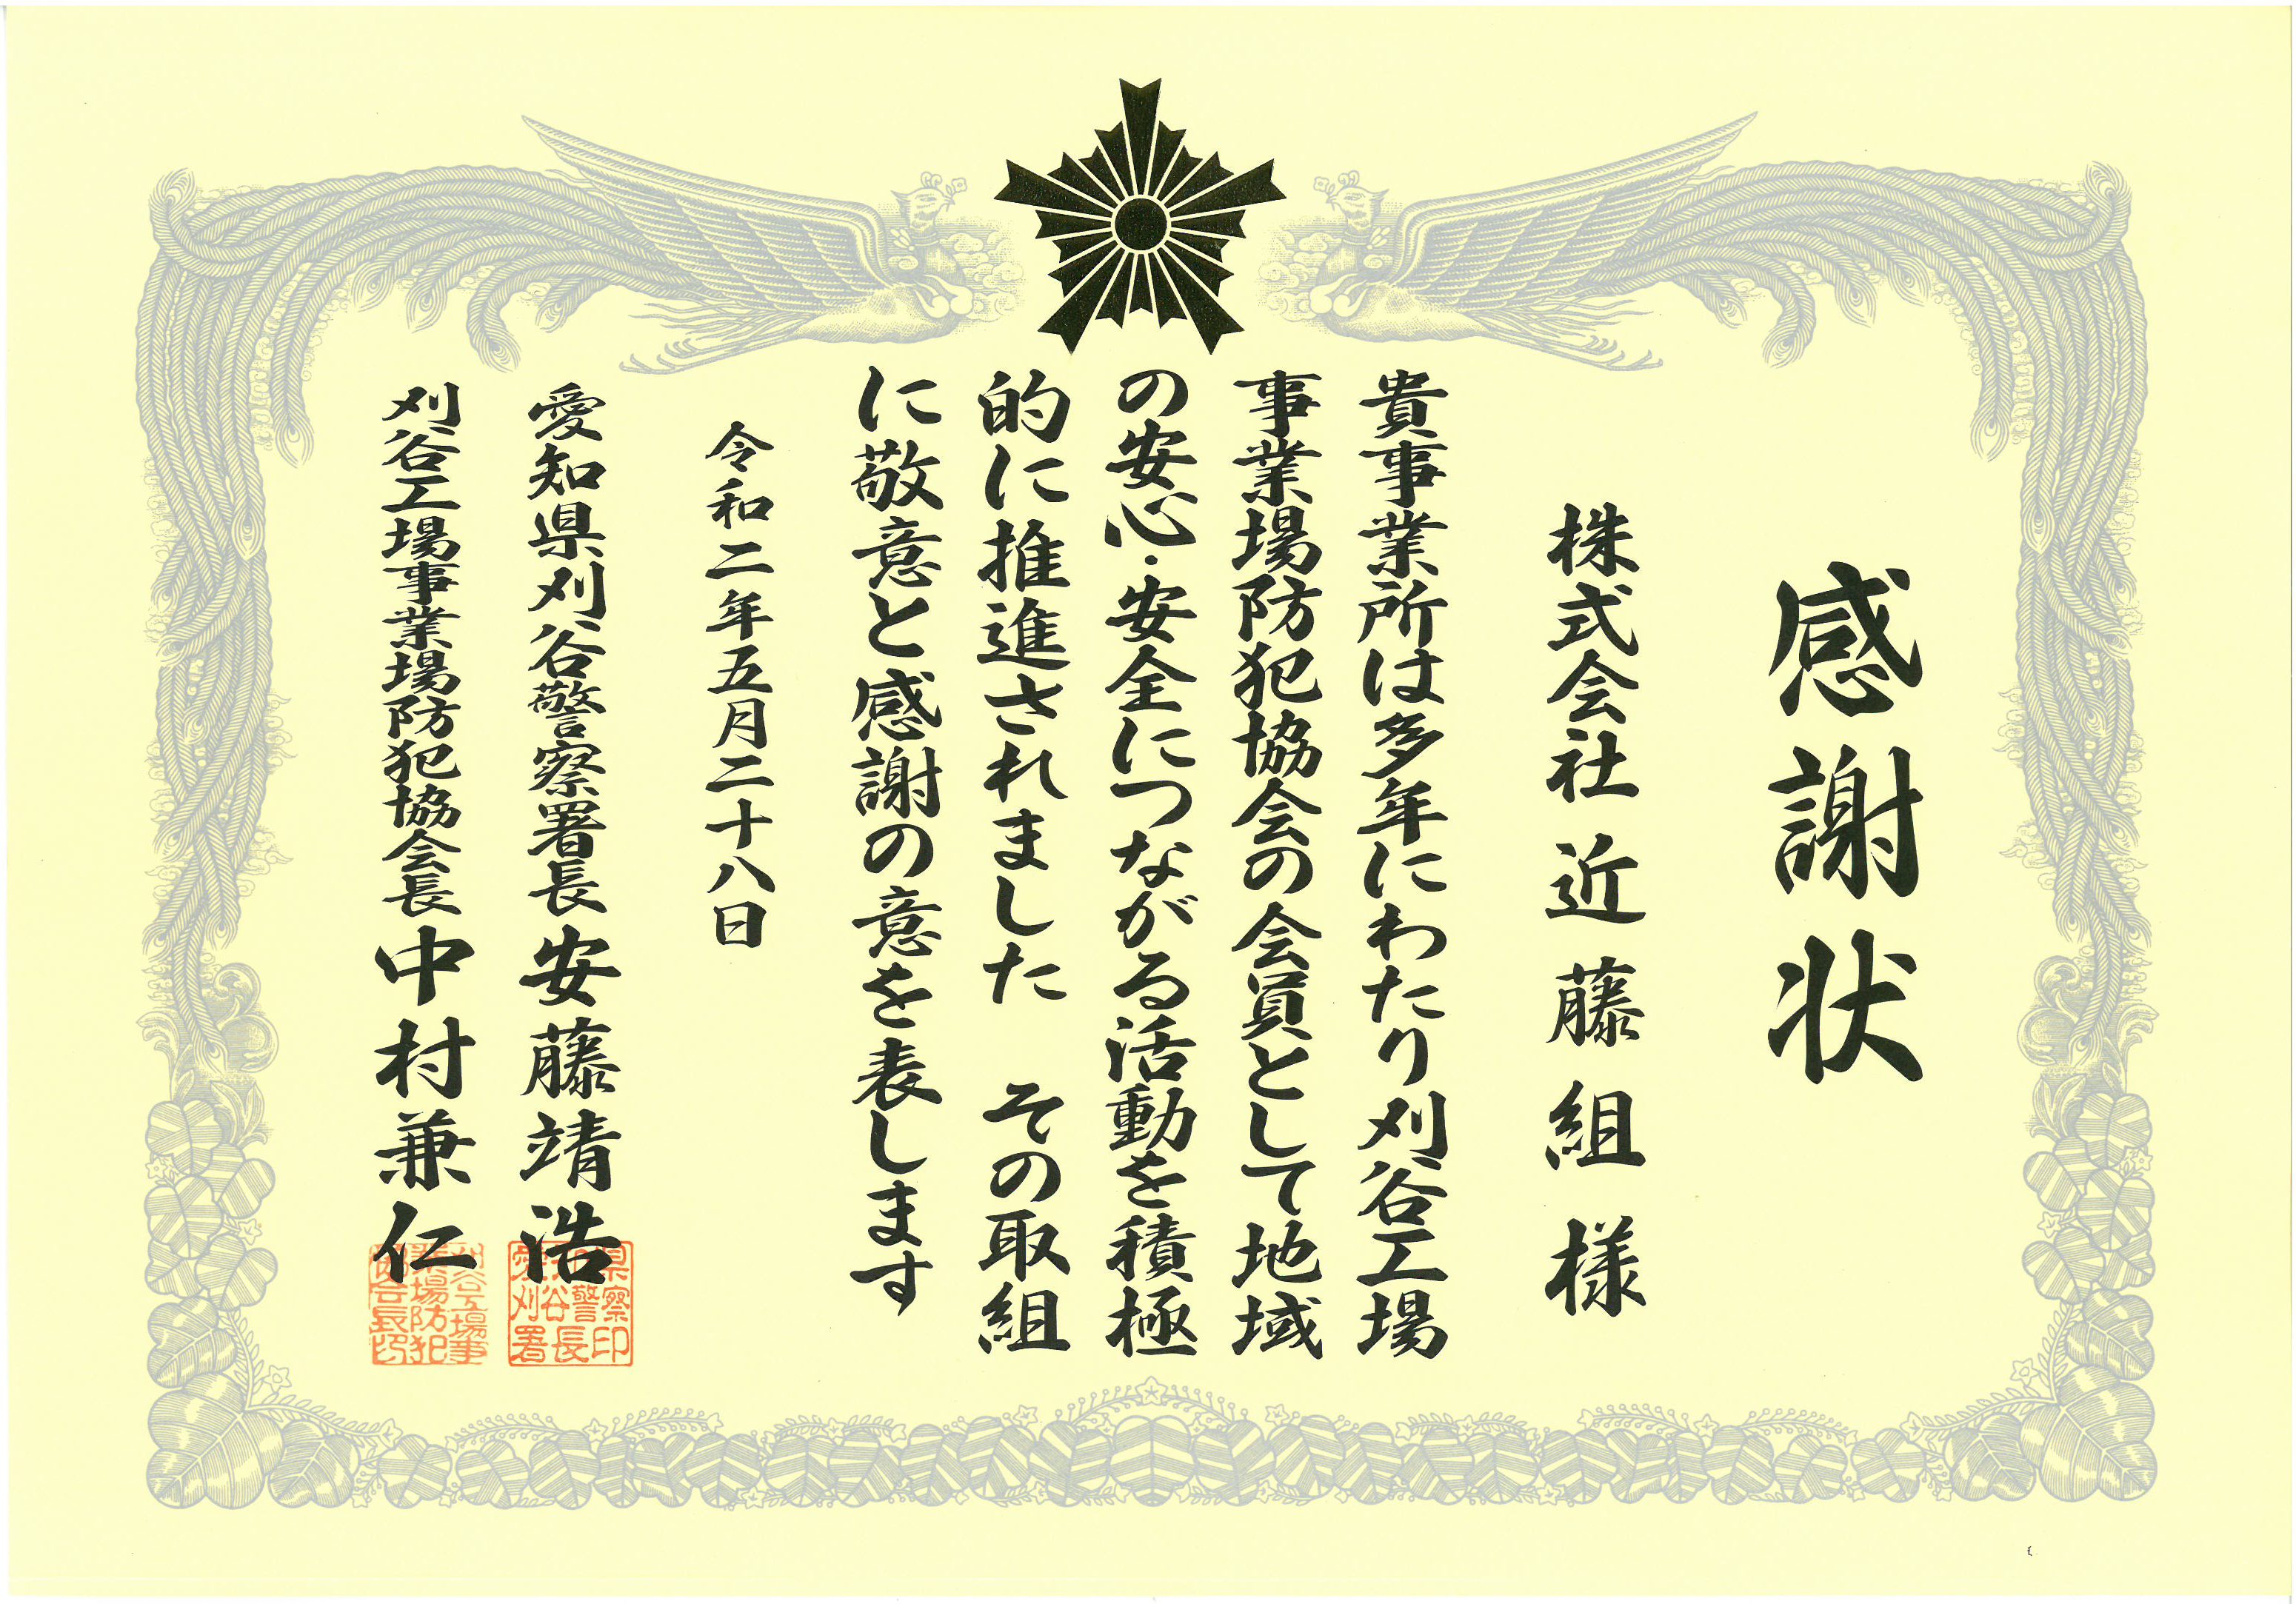 感謝状
株式会社近藤組様
貴事業所は多年にわたり刈谷工場
事業場防犯協会の会員として地域
の安心・安全につながる活動を積極
的に推進されました　その取組
に敬意と感謝の意を表します
令和二年五月二十八日
愛知県刈谷警察署長安藤靖浩
刈谷工場事業場防犯協会長中村兼仁